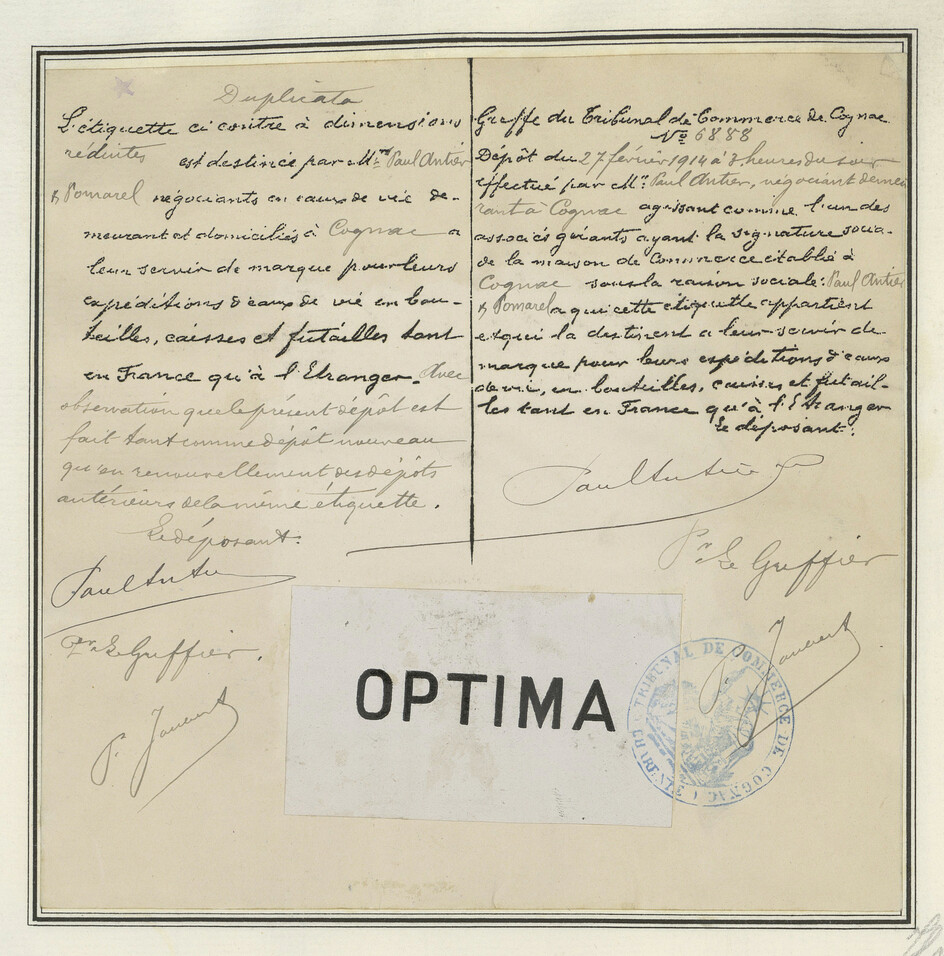 Duplicata
L'étiquette ci contre à dimensions
réduites est destinée par M.rs Paul Antier
& Pomarel négociants en eaux de vie de-
meurant et domiciliés à Cognac a
leur servir de marque pour leurs
expéditions d'eaux de vie en bou-
teilles, caisses et futailles tant
en France qu'à l'Etranger. Avec
observation que le présent dépôt est
fait tant comme dépôt nouveau
qu'en renouvellement des dépôts
antérieurs de la même étiquette.
Le déposant:
Paul Antier
Per Le Greffier.
Greffe du Tribunal de Commerce de Cognac
No 6888
Dépôt du 27 février 1914 à 3 heures du soir
effectué par Mr. Paul Antier, négociant demeu
rant à Cognac agissant comme l'un des
associés gérants ayant la signature socia-
le de la maison de Commerce établie à
Cognac sous la raison sociale: Paul Antier
& Pomarel a qui cette étiquette appartient
et qui la destinent a leur servir de
marque pour leurs expéditions d'eaux
de vie, en bouteilles, caisses et futail-
les tant en France qu'à l'Etranger
Le déposant:
Paul Antier
Pr Le Greffier
OPTIMA
TRIBUNAL DE COMMERCE DE COGNAC
CHARENTE